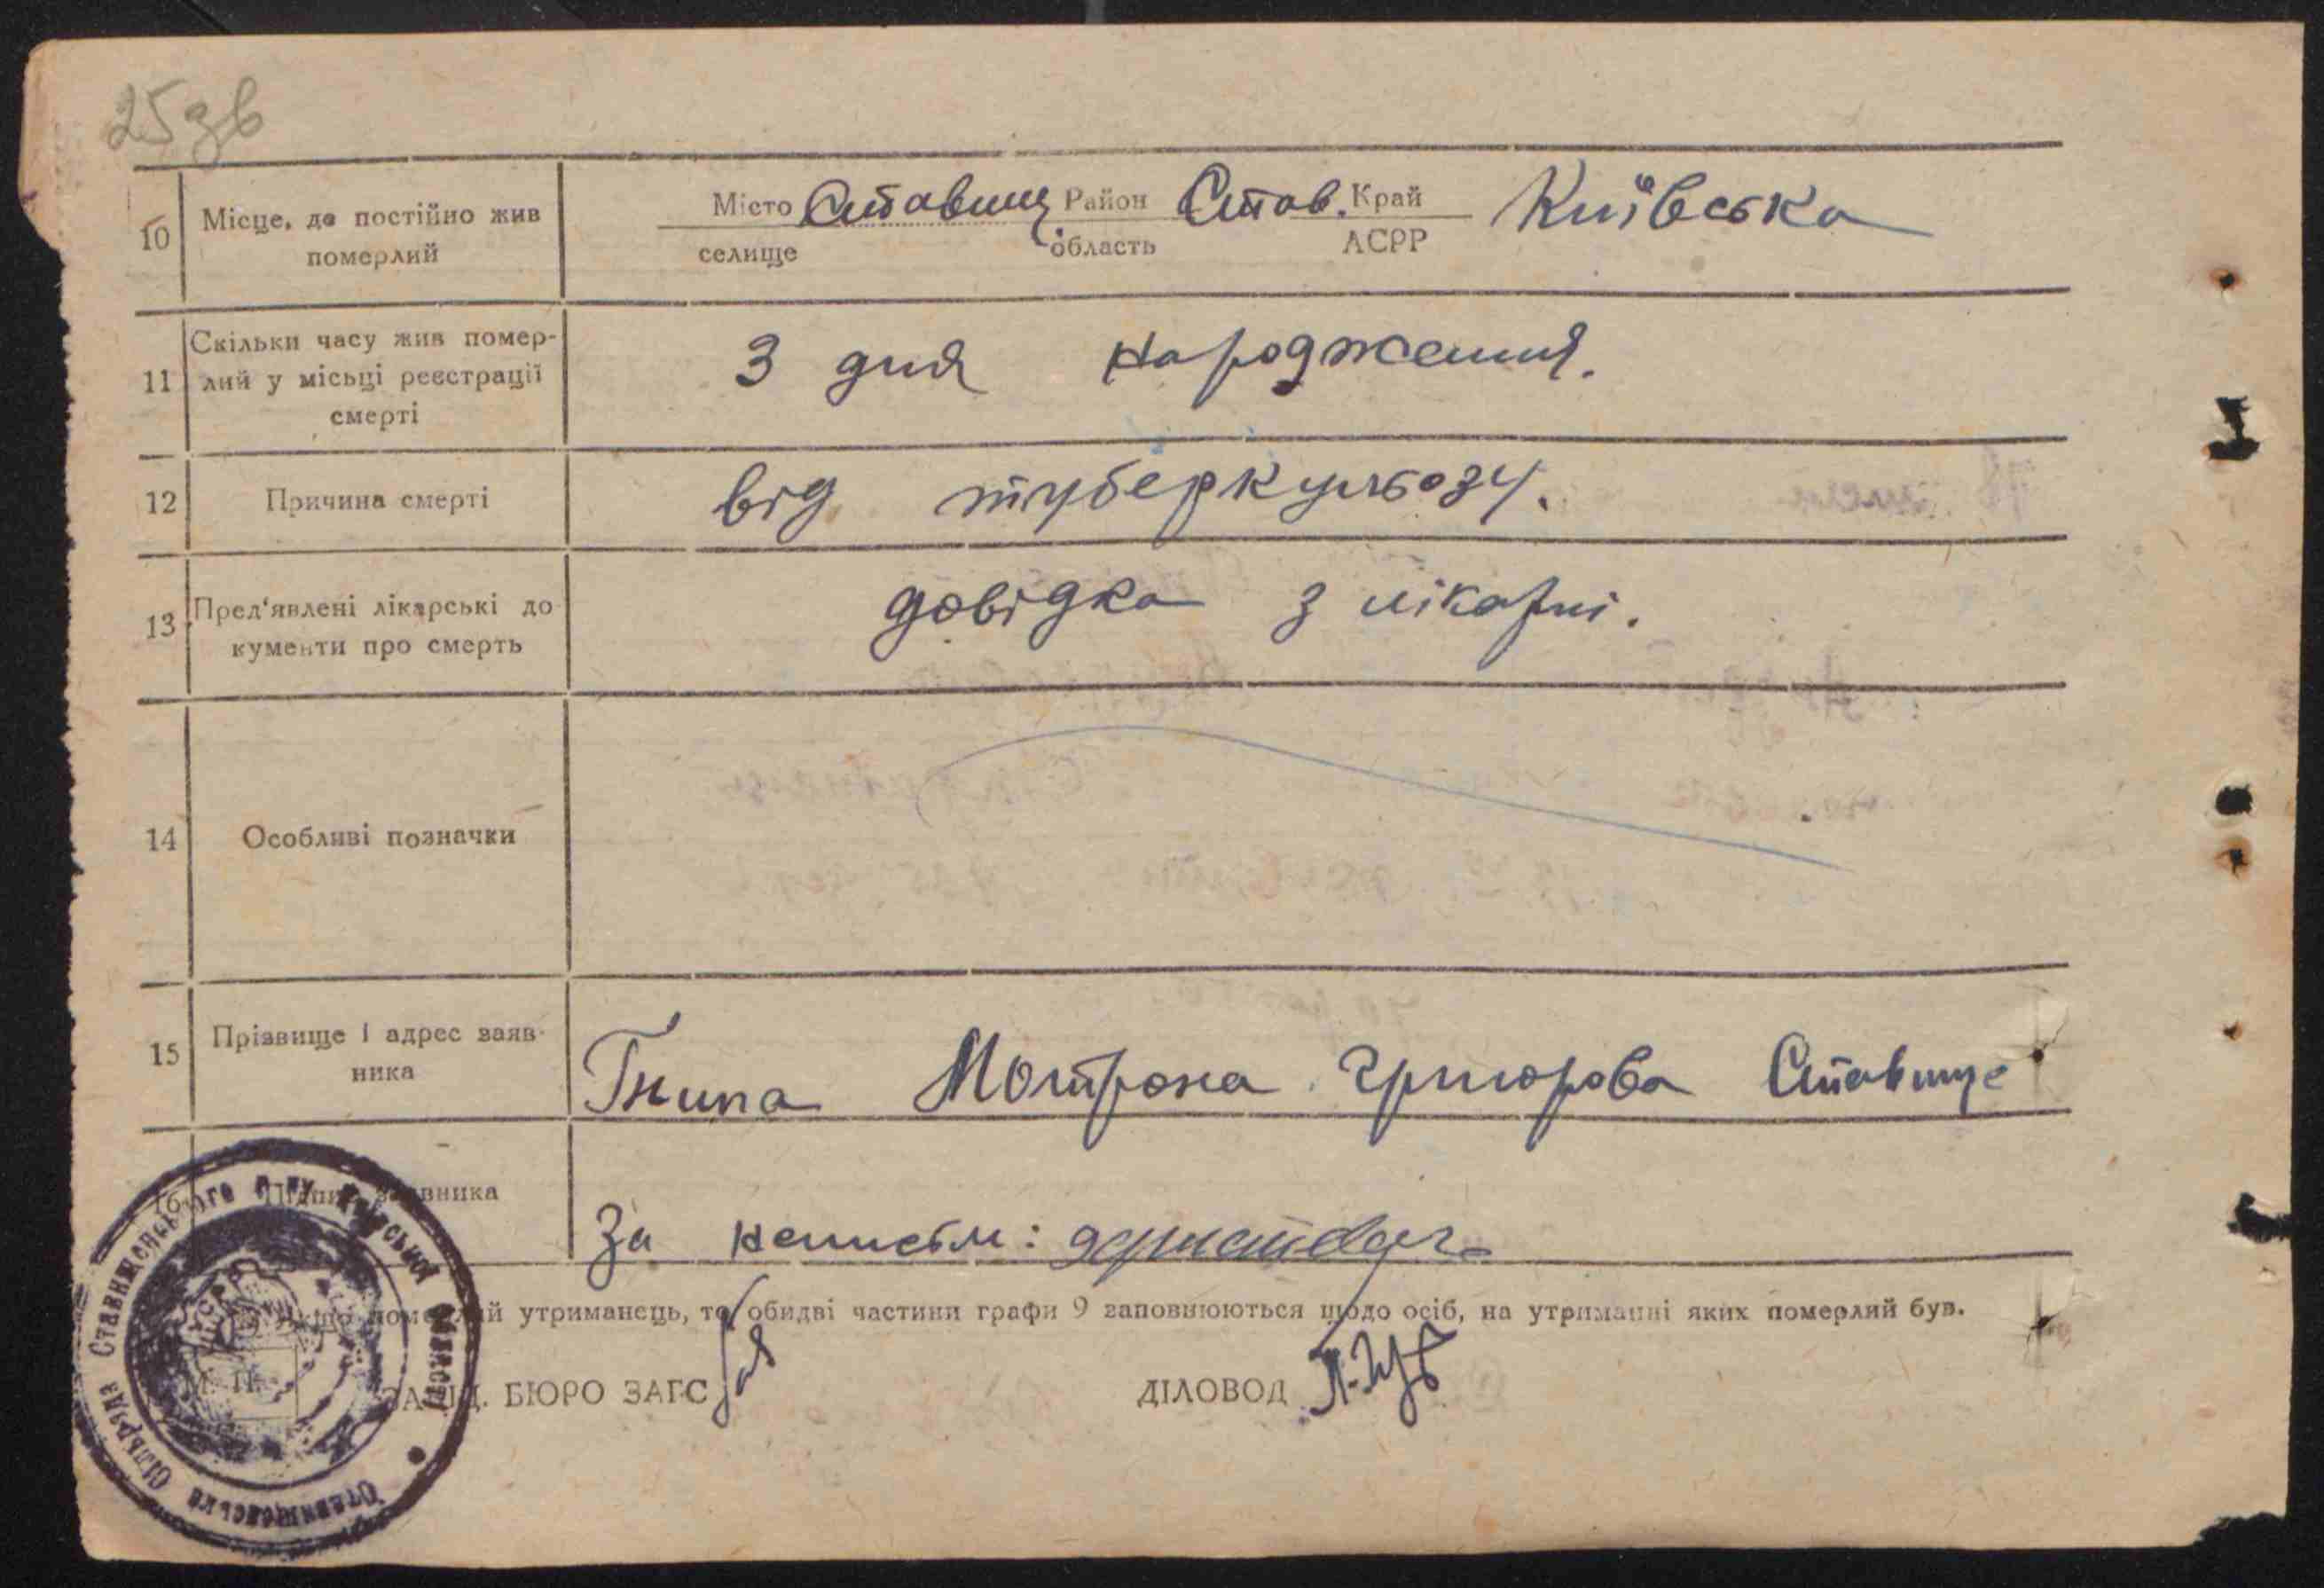 25зв
10 Місце, де постійно жив померлий Місто Ставище Район Став. Край Київська
селище область АСРР
11 Скільки часу жив помер-
лий у місьці реєстрації
смерті
З дня народження.
12 Причина смерті від туберкульозу.
13 Пред'явлені лікарські до
кументи про смерть
довідка з лікарні.
14 Особливі позначки
15 Прізвище і адрес заяв-
ника
Гнипа Мотрона Григорова Ставище
16 Підпис заявника
За неписьм:
Якщо померлий утриманець, то обидві частини графи 9 заповнюються щодо осіб, на утриманні яких померлий був.
М. П.
ЗАВІД. БЮРО ЗАГС ДІЛОВОД
Ставищенська Сільрада Ставищенського р-ну Київської області
УСРР